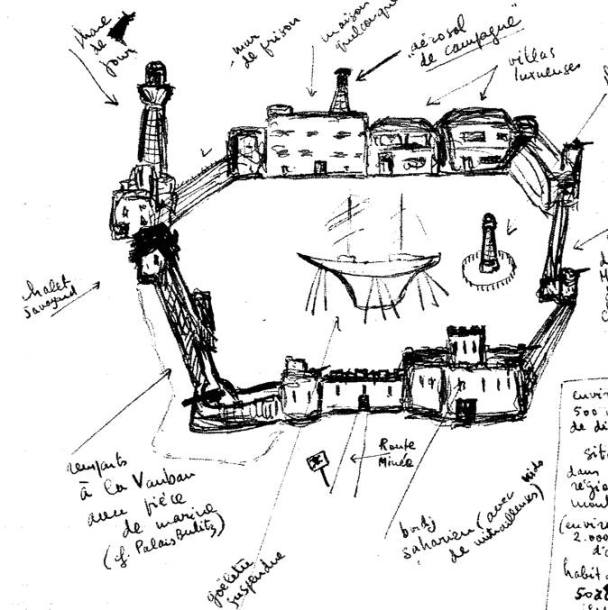 phare
de
jour
mur
de prison
maison
quelconque
"aérosol
de campagne"
villas
luxueuses
chalet
savoyard
remparts
à la Vauban
avec pièce
de marine
(cf. Palais Bulitz)
goélette
suspendue
Route
Minée
bordj
saharien (avec nids
de mitrailleuses)
500
de di
sit
dans
régio
mont
(enviro
2.000
d'a
habit
50